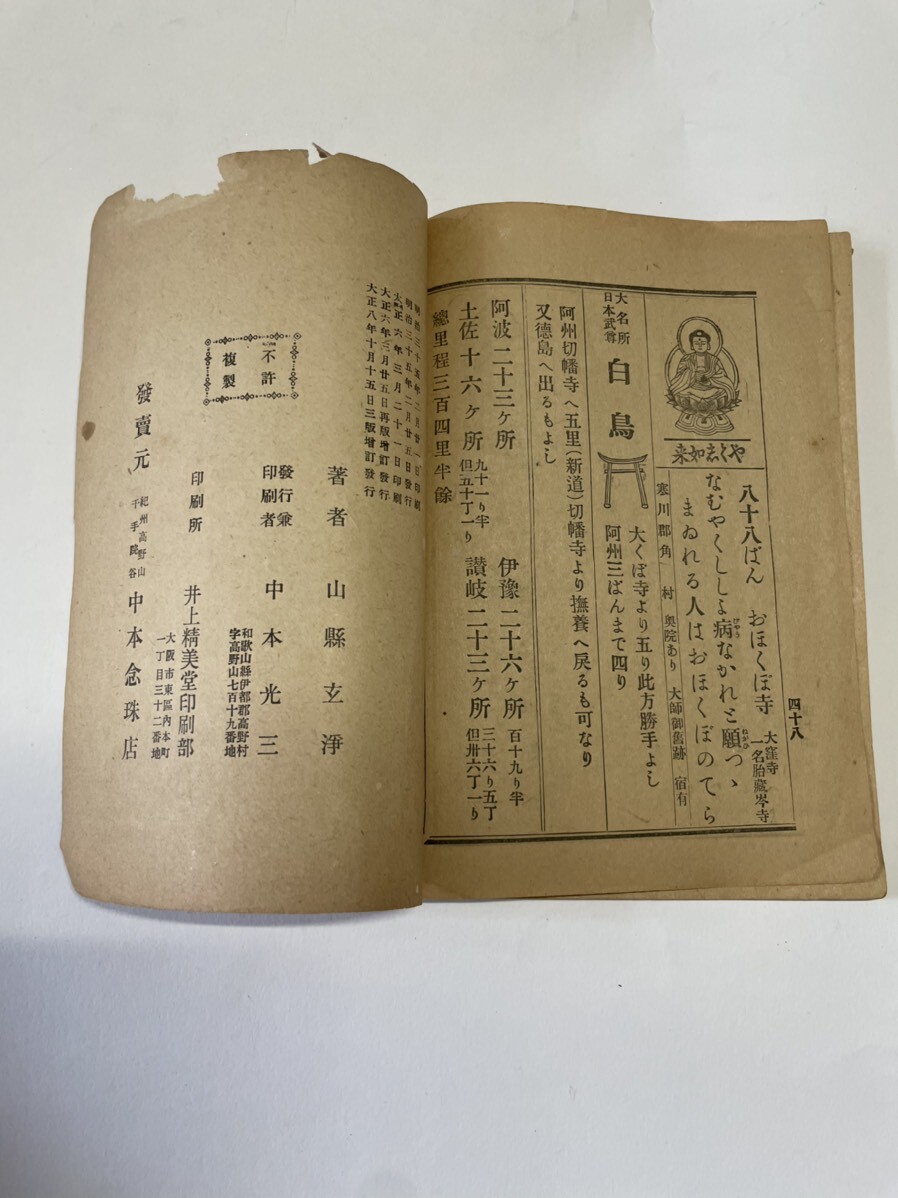 四十八
やくし如来
八十八ばん おほくぼ寺 大窪寺
一名胎藏岑寺
なむやくししよ病なかれと願つゝ
びやう
ねがひ
まゐれる人はおほくぼのてら
寒川郡角 村 奥院あり 大師御舊跡 宿有
大名所
日本武尊
白鳥
大くぼ寺より五り此方勝手よし
阿州三ばんまで四り
阿州切幡寺へ五里(新道)切幡寺より撫養へ戻るも可なり
又德島へ出るもよし
阿波二十三ヶ所 九十一り半
但五十丁一り
伊豫二十六ヶ所 百十九り半
土佐十六ヶ所
讃岐二十三ヶ所 三十六り五丁
但卅六丁一り
總里程三百四里半餘
明治三十五年二月廿五日發行
大正六年三月二十一日印刷
大正六年三月廿五日再版增訂發行
大正八年十月十五日三版增訂發行
不許
複製
著者 山縣玄淨
發行兼
印刷者
和歌山縣伊都郡高野村
字高野山七百十九番地
中本光三
印刷所
井上精美堂印刷部
大阪市東區內本町
一丁目三十二番地
發賣元
紀州高野山
千手院谷
中本念珠店